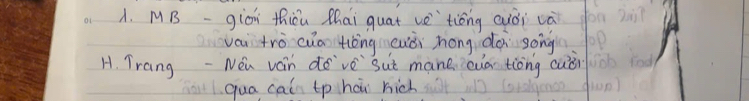 1. MB - giới thiệu khái quát về tiếng cười và
vai trò của tiếng cười trong đời sống
H. Trang - Nêu vấn đề về sức mạnh của tiếng cười
qua các tp hài kịch